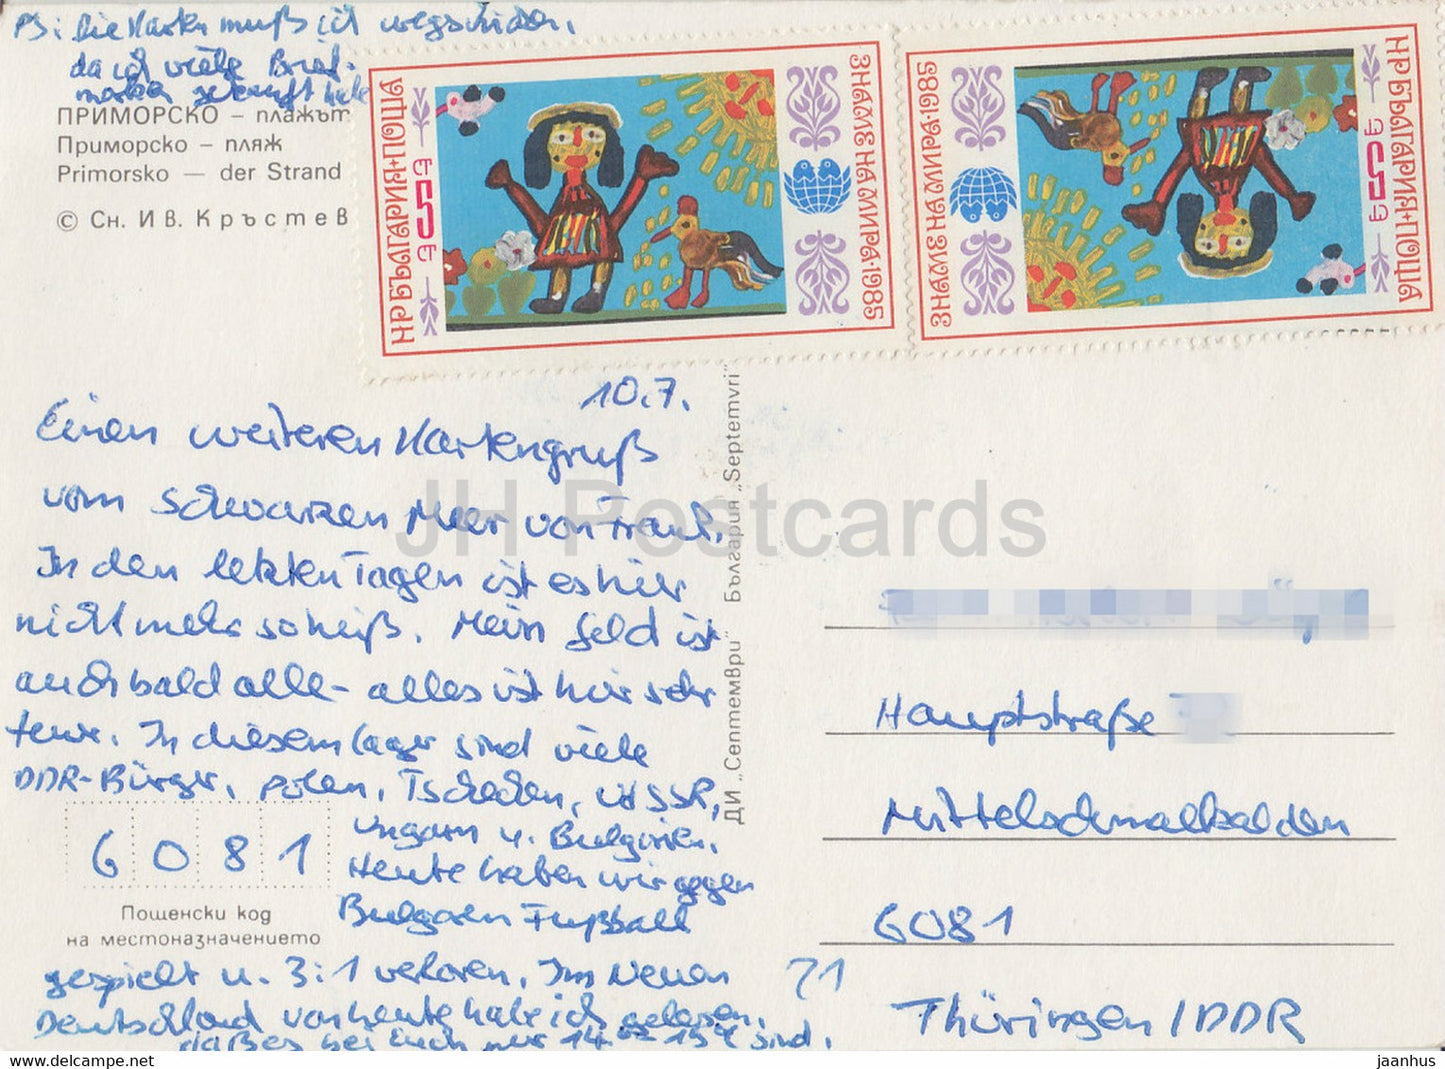 PS: Die Karten muß ich wegschicken,
da ich viele Brief-
marken gekauft habe
ПРИМОРСКО – плажът
Приморско – пляж
Primorsko — der Strand
© Сн. Ив. Кръстев
НР БЪЛГАРИЯ•ПОЩА
5
ЗНАМЕ НА МИРА•1985
НР БЪЛГАРИЯ•ПОЩА
5
ЗНАМЕ НА МИРА•1985
10.7.
Einen weiteren Kartengruß
vom Schwarzen Meer von Frank.
In den letzten Tagen ist es hier
nicht mehr so heiß. Mein Geld ist
auch bald alle – alles ist hier sehr
teuer. In diesem Lager sind viele
DDR-Bürger, Polen, Tschechen, UdSSR,
Ungarn u. Bulgarien.
Heute haben wir gegen
Bulgaren Fußball
gespielt u. 3:1 verloren. Im Neuen
Deutschland von heute habe ich gelesen,
daß es bei Euch nur 14 – 19°C sind.
6081
Пощенски код
на местоназначението
ДИ „Септември" България „Septemvri"
Hauptstraße
Mittelschmalkalden
6081
71
Thüringen/DDR
JH Postcards
www.delcampe.net
jaanhus